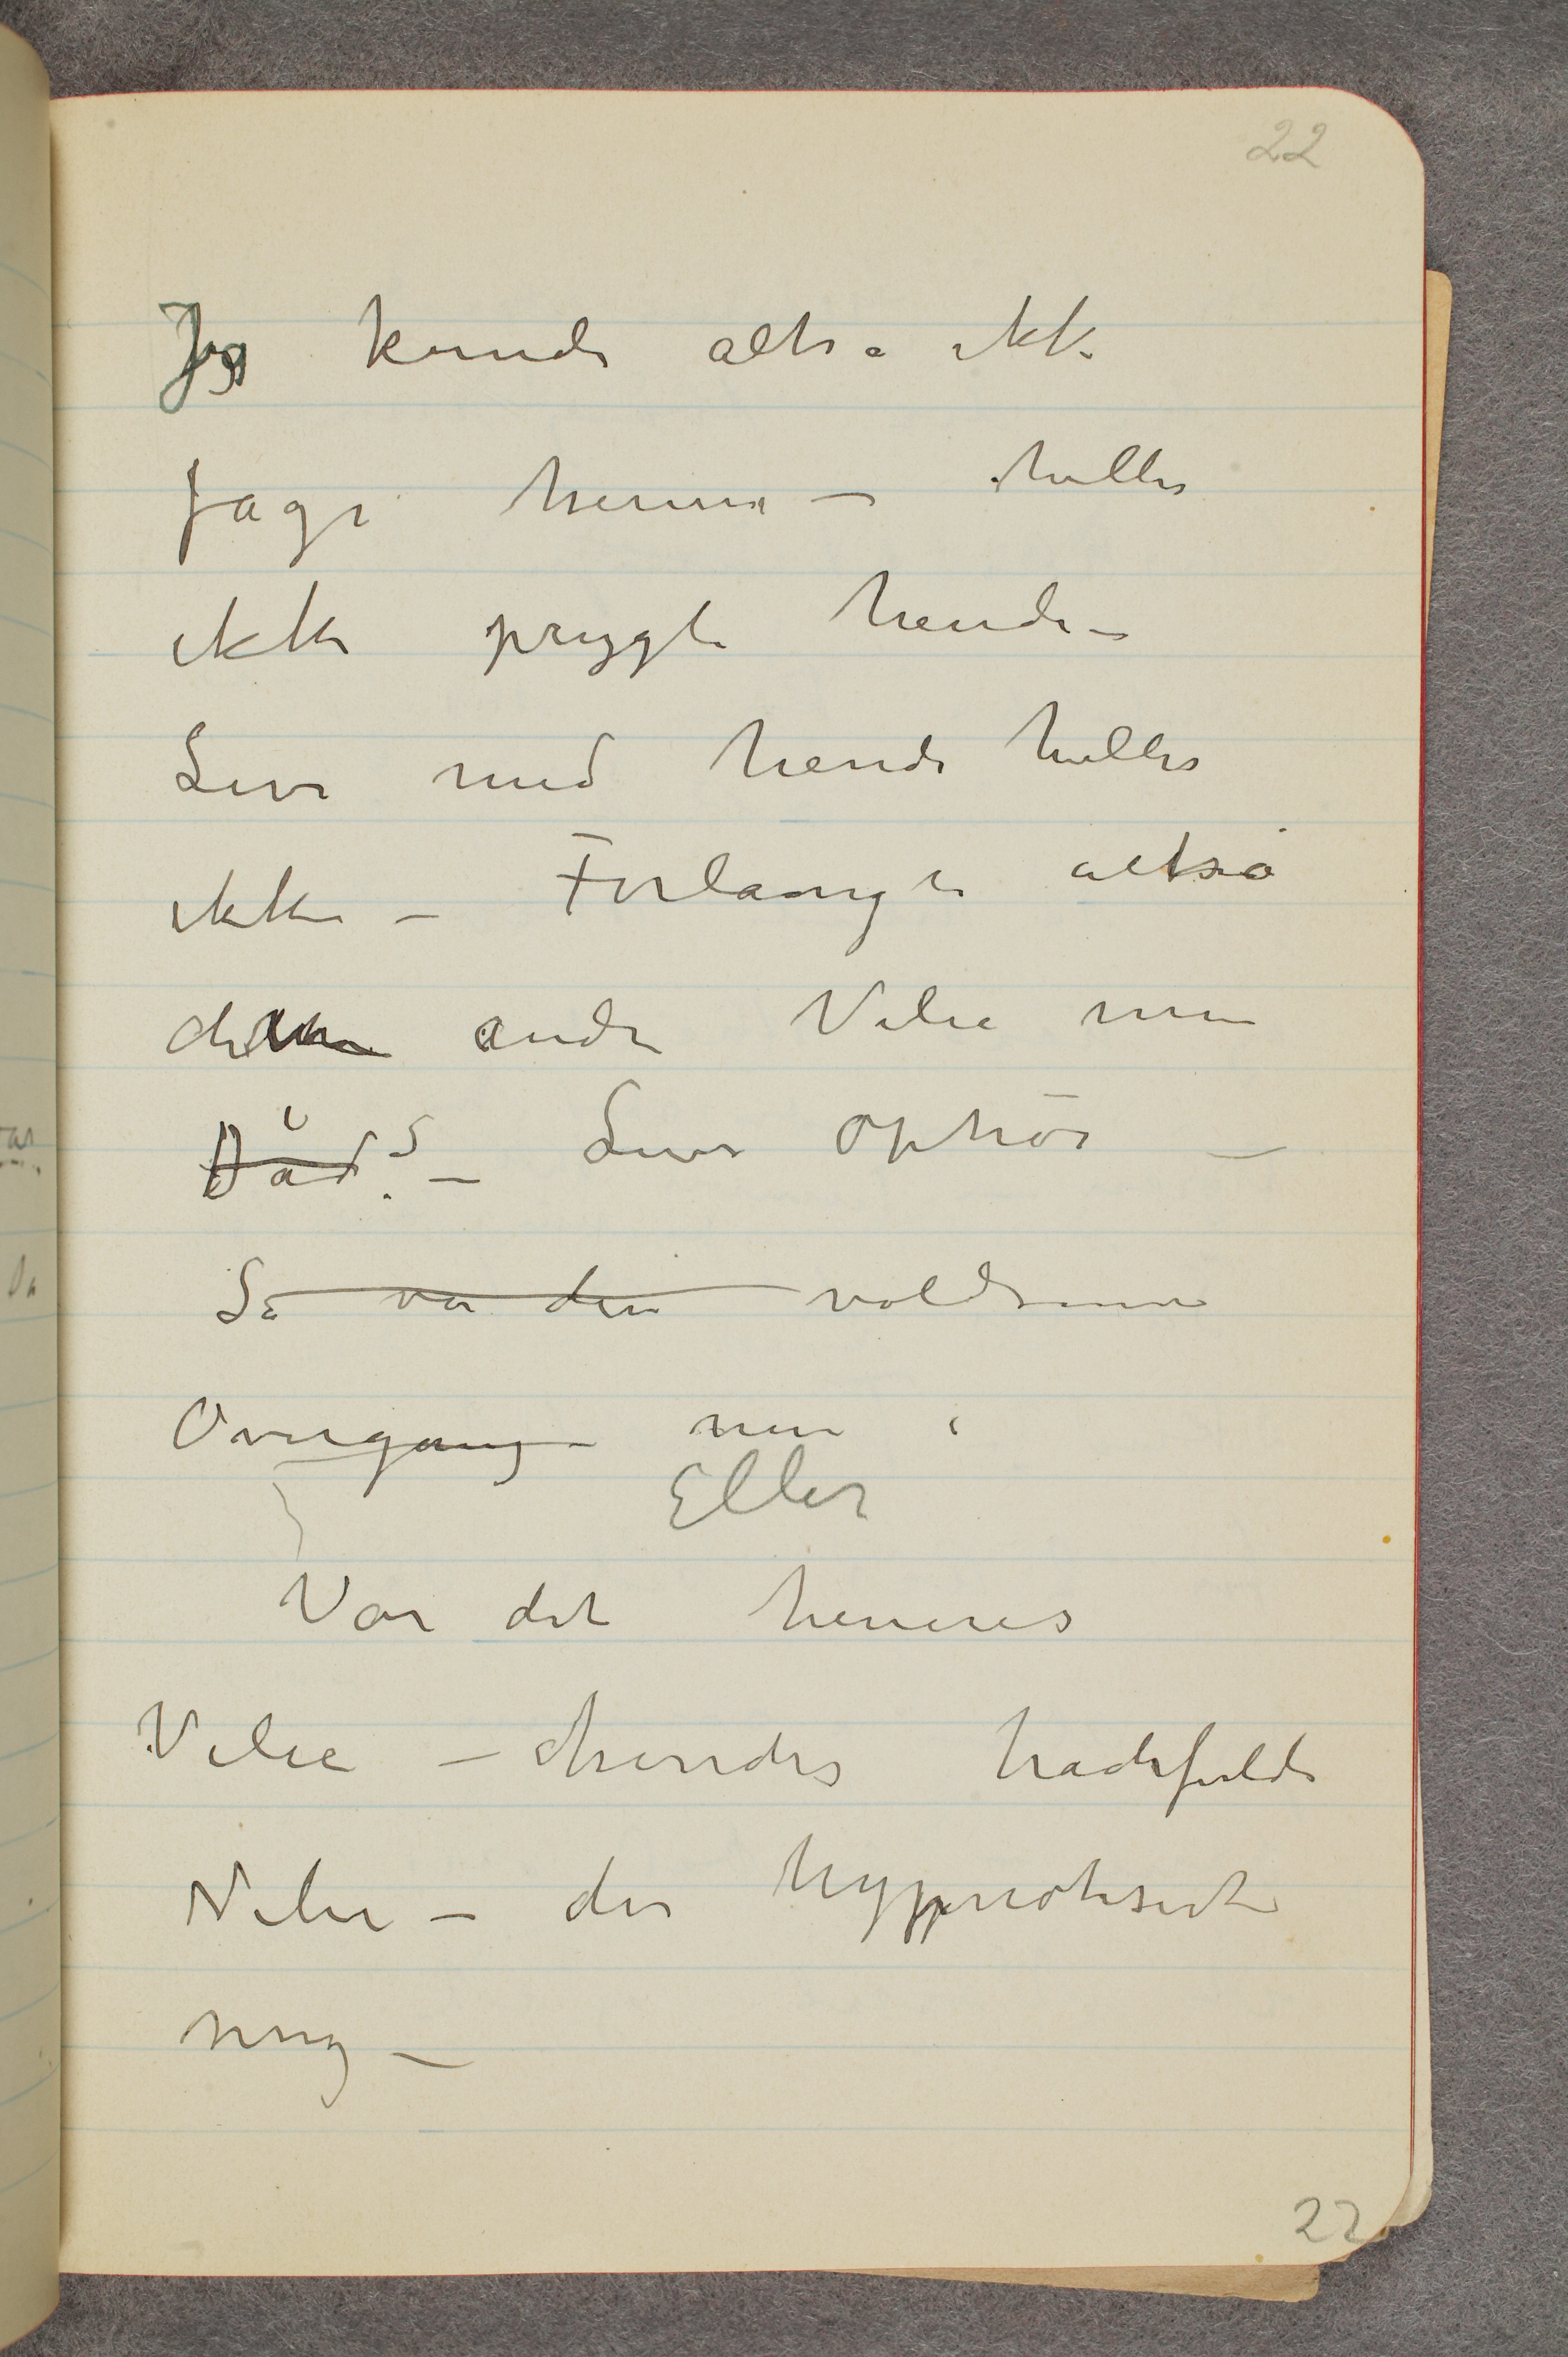 22
Jeg kunde altså ikke
jage henne – heller
ikke prygle hende –
Leve med hende heller
ikke – Forlangte altså
den andre Vilie min
Død? – Livs Ophør –
Så var den voldsomme
Overgang min i
Eller
Var det hennes
Vilie – hendes hadefulde
Vilie – der hypnotiserte
mig –
22